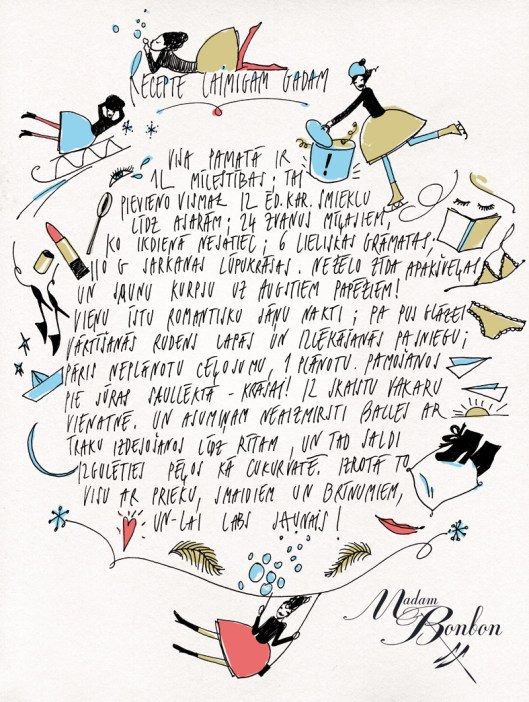 RECEPTE LAIMĪGAM GADAM
VISA PAMATĀ IR
1L MĪLESTĪBAS; TAI
PIEVIENO VISMAZ 12 ĒD.KAR. SMIEKLU
LĪDZ ASARĀM; 24 ZVANUS MĪĻAJIEM,
KO IKDIENĀ NESATIEC; 6 LIELISKAS GRĀMATAS;
110 G SARKANAS LŪPUKRĀSAS. NEŽĒLO ZĪDA APAKŠVEĻAS
UN JAUNU KURPJU UZ AUGSTIEM PAPĒŽIEM!
VIENU ĪSTU ROMANTISKU JĀŅU NAKTI; PA PUS GLĀZEI
VĀRTĪŠANĀS RUDENS LAPĀS UN IZLĒKĀŠANĀS PA SNIEGU;
PĀRIS NEPLĀNOTU CEĻOJUMU, 1 PLĀNOTU. PAMOŠANOS
PIE JŪRAS SAULLĒKTĀ - KRĀSAI! 12 SKAISTU VAKARU
VIENATNĒ. UN ASUMIŅAM NEAIZMIRSTI BALLES AR
TRAKU IZDEJOŠANOS LĪDZ RĪTAM, UN TAD SALDI
IZGULĒTIES PĒĻOS KĀ CUKURVATĒ. IZROTĀ TO
VISU AR PRIEKU, SMAIDIEM UN BRĪNUMIEM,
UN-LAI LABS JAUNAIS!
!
Madam
Bonbon